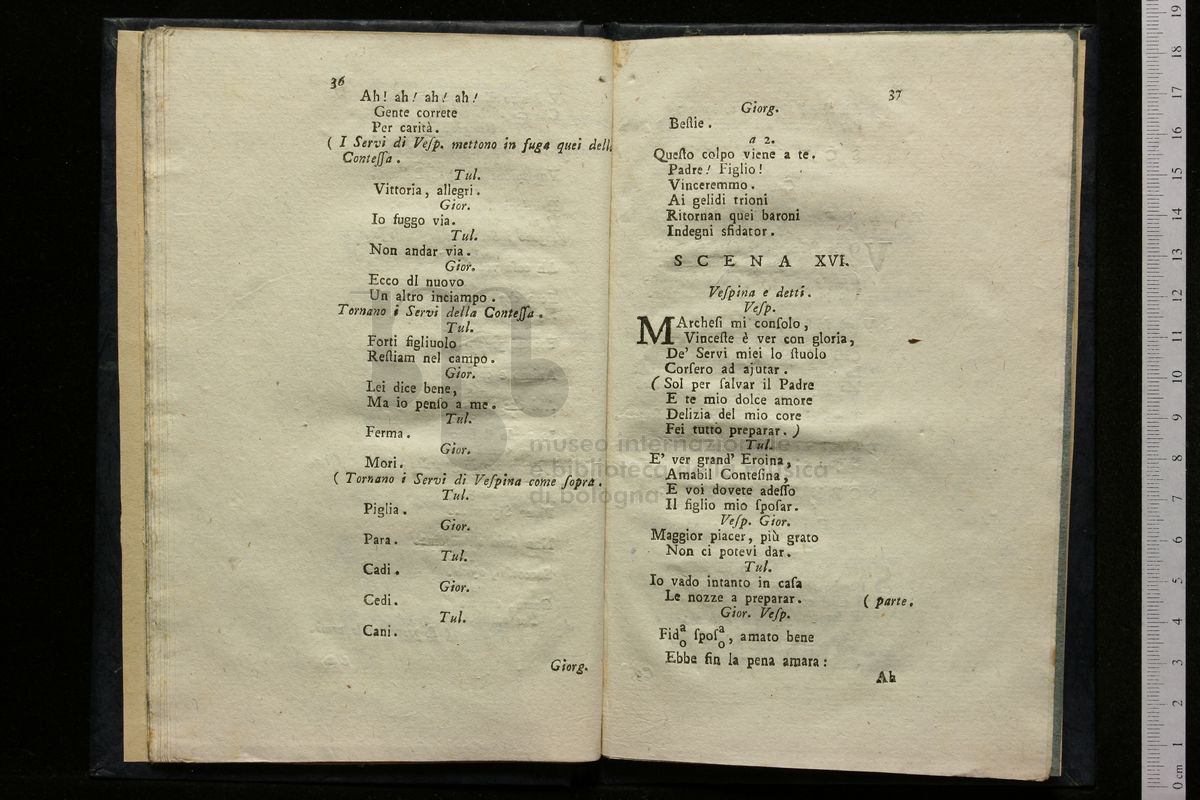 36
Ah! ah! ah! ah!
Gente correte
Per carità.
( I Servi di Veſp. mettono in fuga quei della
Conteſſa.
Tul.
Vittoria, allegri.
Gior.
Io fuggo via.
Tul.
Non andar via.
Gior.
Ecco dI nuovo
Un altro inciampo.
Tornano i Servi della Conteſſa.
Tul.
Forti figliuolo
Reſtiam nel campo.
Gior.
Lei dice bene,
Ma io penſo a me.
Tul.
Ferma.
Gior.
Mori.
( Tornano i Servi di Veſpina come ſopra.
Tul.
Piglia.
Gior.
Para.
Tul.
Cadi.
Gior.
Cedi.
Tul.
Cani.
Giorg.
37
Giorg.
Beſtie.
a 2.
Queſto colpo viene a te.
Padre! Figlio!
Vinceremmo.
Ai gelidi trioni
Ritornan quei baroni
Indegni sfidator.
SCENA XVI.
Veſpina e detti.
Veſp.
MArcheſi mi conſolo,
Vinceſte è ver con gloria,
De' Servi miei lo ſtuolo
Corſero ad ajutar.
( Sol per ſalvar il Padre
E te mio dolce amore
Delizia del mio core
Fei tutto preparar. )
Tul.
E' ver grand' Eroina,
Amabil Conteſina,
E voi dovete adeſſo
Il figlio mio ſpoſar.
Veſp. Gior.
Maggior piacer, più grato
Non ci potevi dar.
Tul.
Io vado intanto in caſa
Le nozze a preparar. ( parte.
Gior. Veſp.
Fidᵃₒ ſpoſᵃₒ, amato bene
Ebbe fin la pena amara:
Ah
museo internazionale
e biblioteca della musica
di bologna
0 cm 1 2 3 4 5 6 7 8 9 10 11 12 13 14 15 16 17 18 19